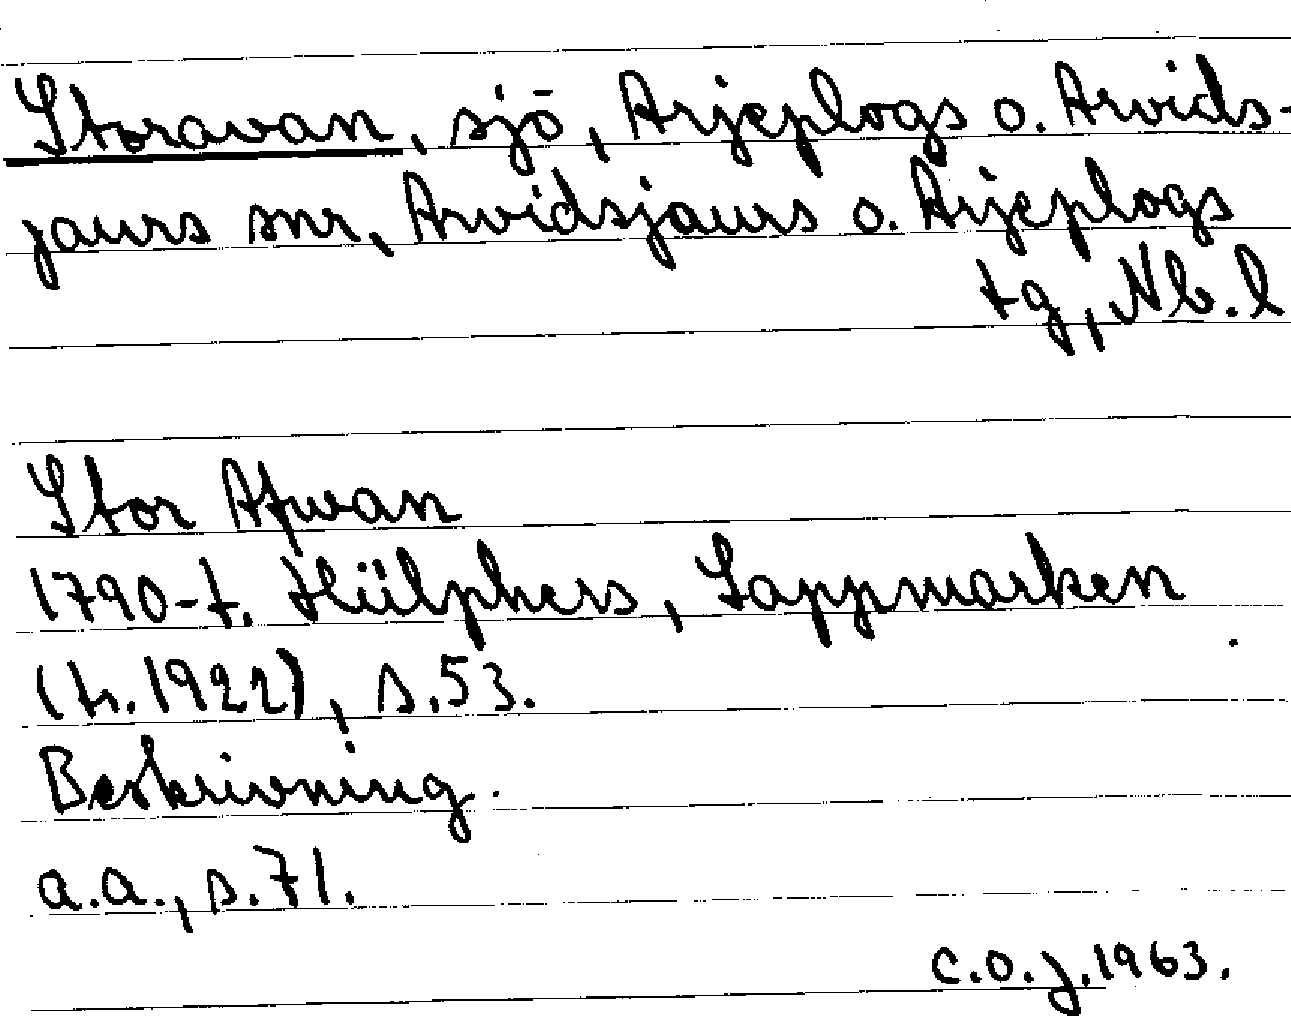 Storavan, sjö, Arjeplogs o. Arvids-
jaurs snr, Arvidsjaurs o. Arjeplogs
tg, Nb. l
Stor Afwan
1790-t. Hülphers, Lappmarken
(tr. 1922), s. 53.
Beskrivning.
a.a., s. 71.
C.O.J. 1963.